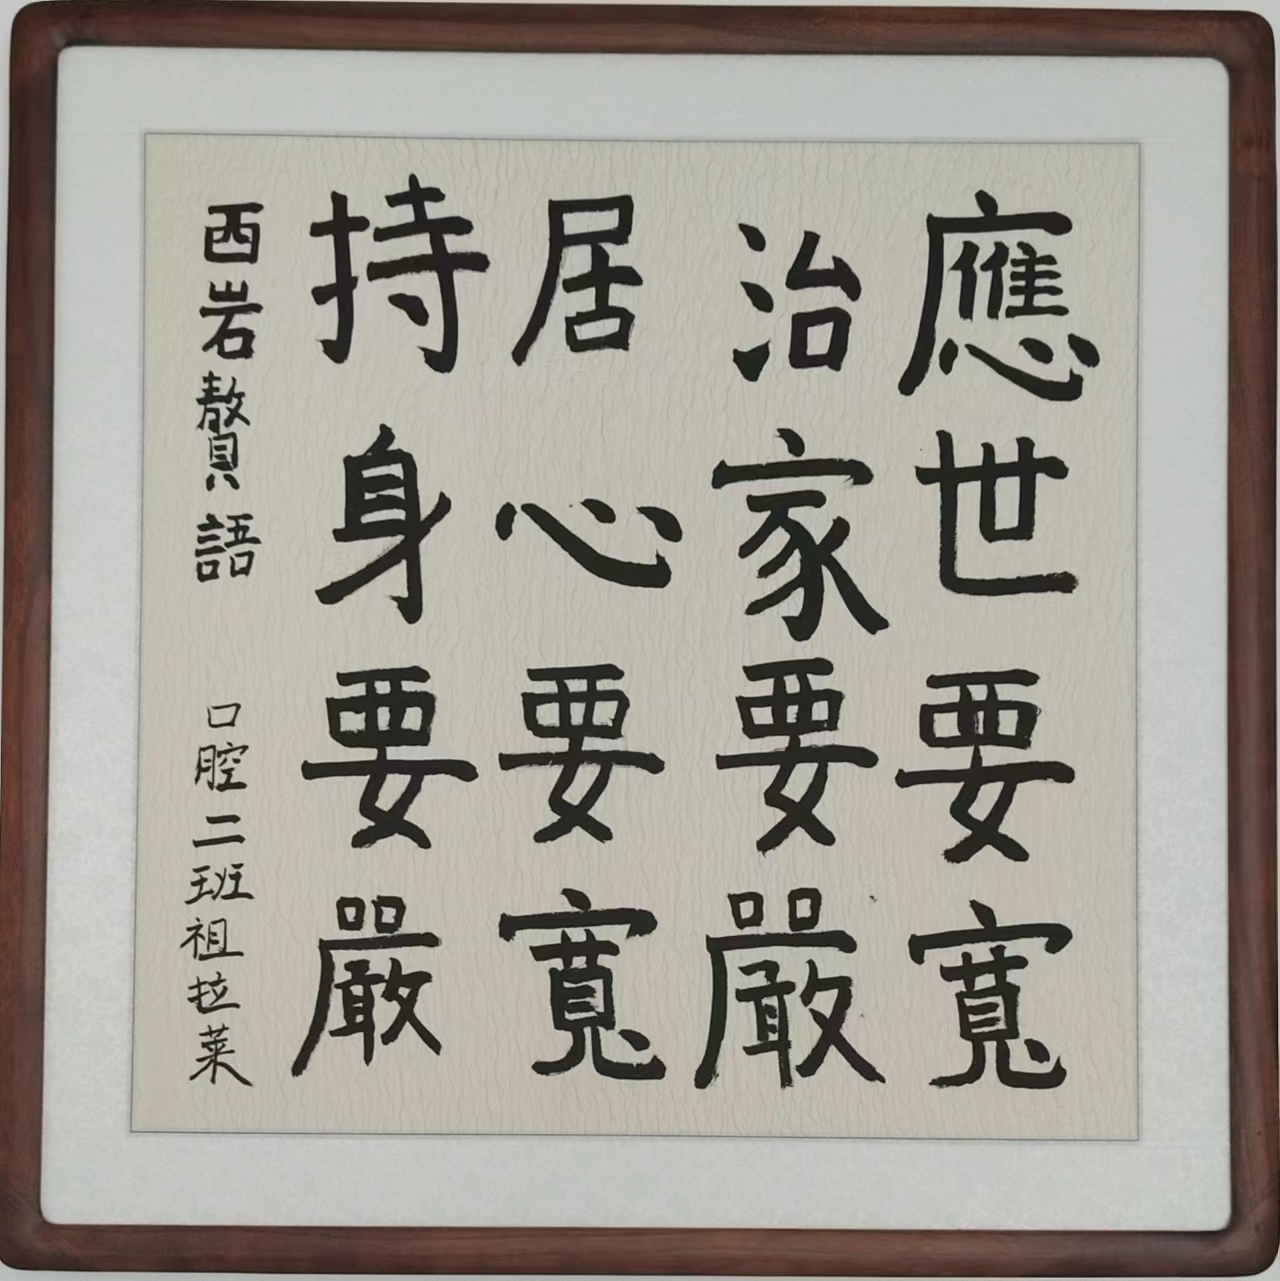 應世要寬
治家要嚴
居心要寬
持身要嚴
西岩贅語 口腔二班祖拉莱